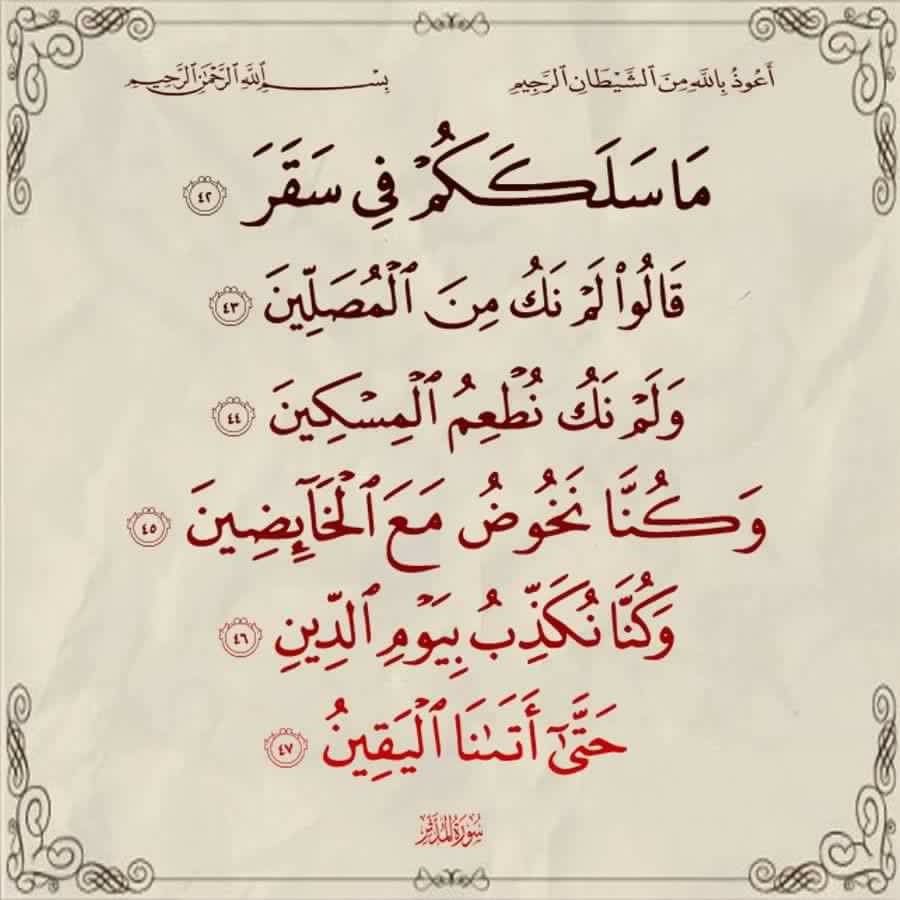 أَعُوذُ بِاللَّهِ مِنَ الشَّيْطَانِ الرَّجِيمِ بِسْمِ اللَّهِ الرَّحْمَٰنِ الرَّحِيمِ
مَا سَلَكَكُمْ فِي سَقَرَ ٤٢
قَالُوا۟ لَمْ نَكُ مِنَ ٱلْمُصَلِّينَ ٤٣
وَلَمْ نَكُ نُطْعِمُ ٱلْمِسْكِينَ ٤٤
وَكُنَّا نَخُوضُ مَعَ ٱلْخَآئِضِينَ ٤٥
وَكُنَّا نُكَذِّبُ بِيَوْمِ ٱلدِّينِ ٤٦
حَتَّىٰٓ أَتَىٰنَا ٱلْيَقِينُ ٤٧
سُورَةُ المُدَّثِّر